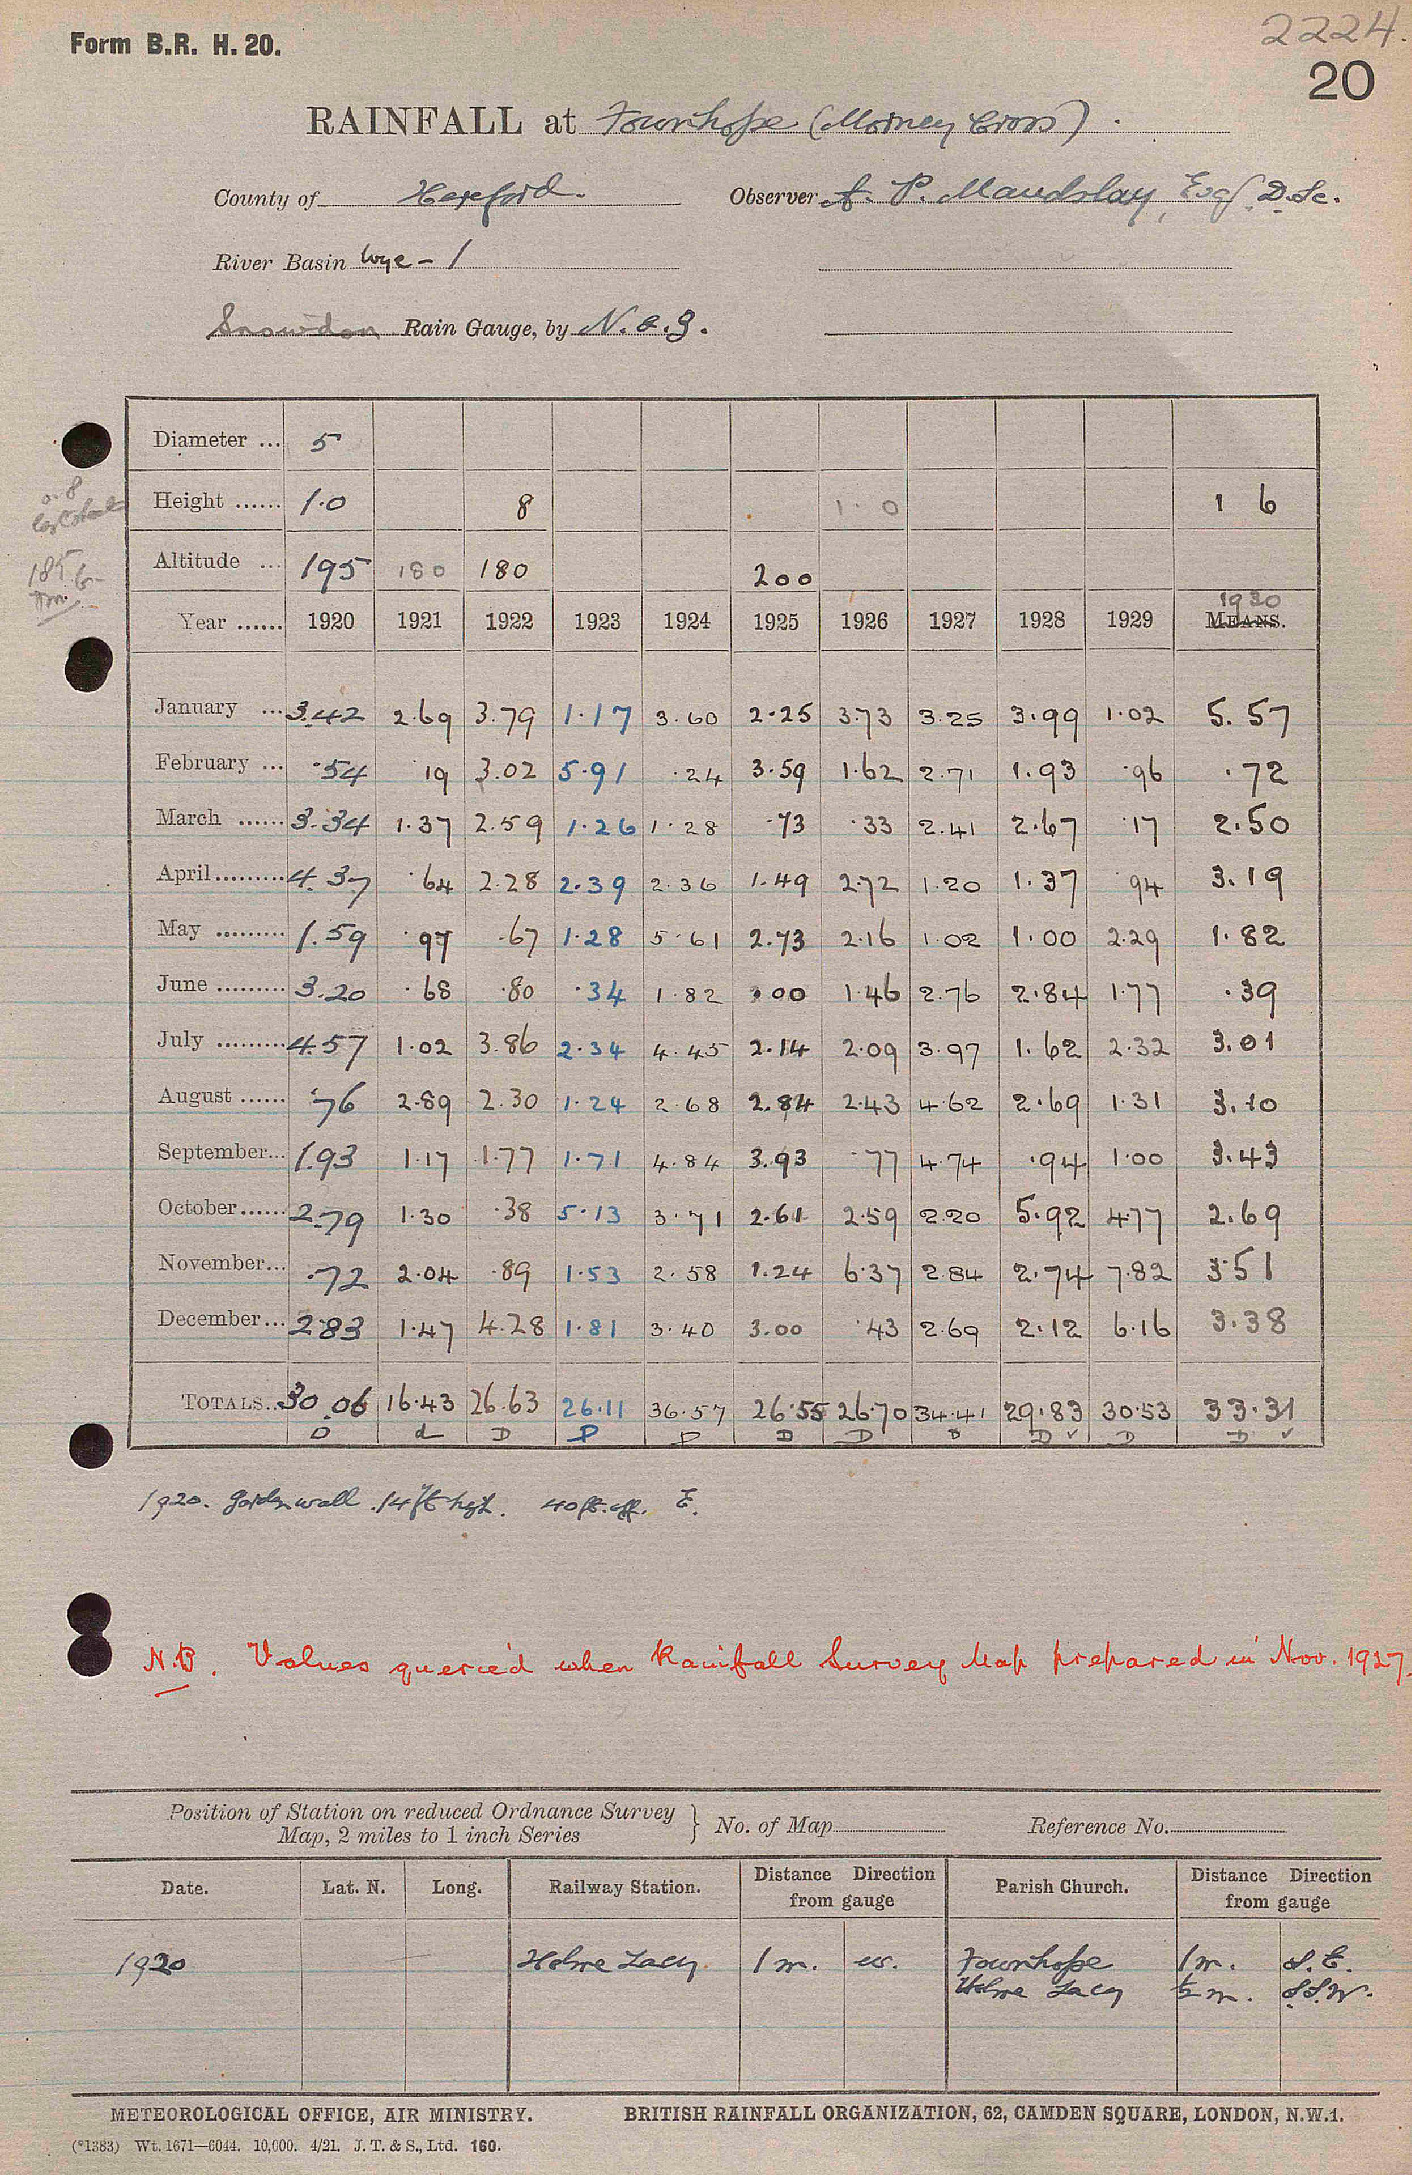 Form B.R. H. 20.
2224.
20
RAINFALL at Fownhope (Morney Cross).
County of Hereford.
Observer A. P. Maudslay, Esq. D.Sc.
River Basin Wye - 1
Snowdon Rain Gauge, by N. & Z.
Diameter ... 5
Height ...... 1·0 8 1·0 1 6
Altitude ... 195 180 180 200
185
Year ...... 1920 1921 1922 1923 1924 1925 1926 1927 1928 1929 MEANS. 1930
January ... 3.42 2.69 3.79 1.17 3.60 2.25 3.73 3.25 3.99 1.02 5.57
February ... .54 19 3.02 5.91 .24 3.59 1.62 2.71 1.93 .96 .72
March ...... 3.34 1.37 2.59 1.26 1.28 .73 .33 2.41 2.67 .17 2.50
April ......... 4.37 .64 2.28 2.39 2.36 1.49 2.72 1.20 1.37 .94 3.19
May ......... 1.59 .97 .67 1.28 5.61 2.73 2.16 1.02 1.00 2.29 1.82
June ......... 3.20 .68 .80 .34 1.82 .00 1.46 2.76 2.84 1.77 .39
July ......... 4.57 1.02 3.86 2.34 4.45 2.14 2.09 3.97 1.62 2.32 3.01
August ...... .76 2.89 2.30 1.24 2.68 2.84 2.43 4.62 2.69 1.31 3.10
September... 1.93 1.17 1.77 1.71 4.84 3.93 .77 4.74 .94 1.00 3.43
October...... 2.79 1.30 .38 5.13 3.71 2.61 2.59 2.20 5.92 4.77 2.69
November... .72 2.04 .89 1.53 2.58 1.24 6.37 2.84 2.74 7.82 3.51
December... 2.83 1.47 4.28 1.81 3.40 3.00 .43 2.69 2.12 6.16 3.38
TOTALS... 30.06 16.43 26.63 26.11 36.57 26.55 26.70 34.41 29.83 30.53 33.31
D d D P P D D B D ✓ D D ✓
1920. Garden wall 14 ft high. 40 ft. off. E.
N.B. Values queried when Rainfall Survey Map prepared in Nov. 1927.
Position of Station on reduced Ordnance Survey
Map, 2 miles to 1 inch Series
No. of Map
Reference No.
Date. Lat. N. Long. Railway Station. Distance Direction from gauge Parish Church. Distance Direction from gauge
1920 Holme Lacy. 1 m. W. Fownhope 1 m. S.E.
Holme Lacy ½ m. S.S.W.
METEOROLOGICAL OFFICE, AIR MINISTRY.
BRITISH RAINFALL ORGANIZATION, 62, CAMDEN SQUARE, LONDON, N.W.1.
(*1383) Wt. 1671—6044. 10,000. 4/21. J. T. & S., Ltd. 160.